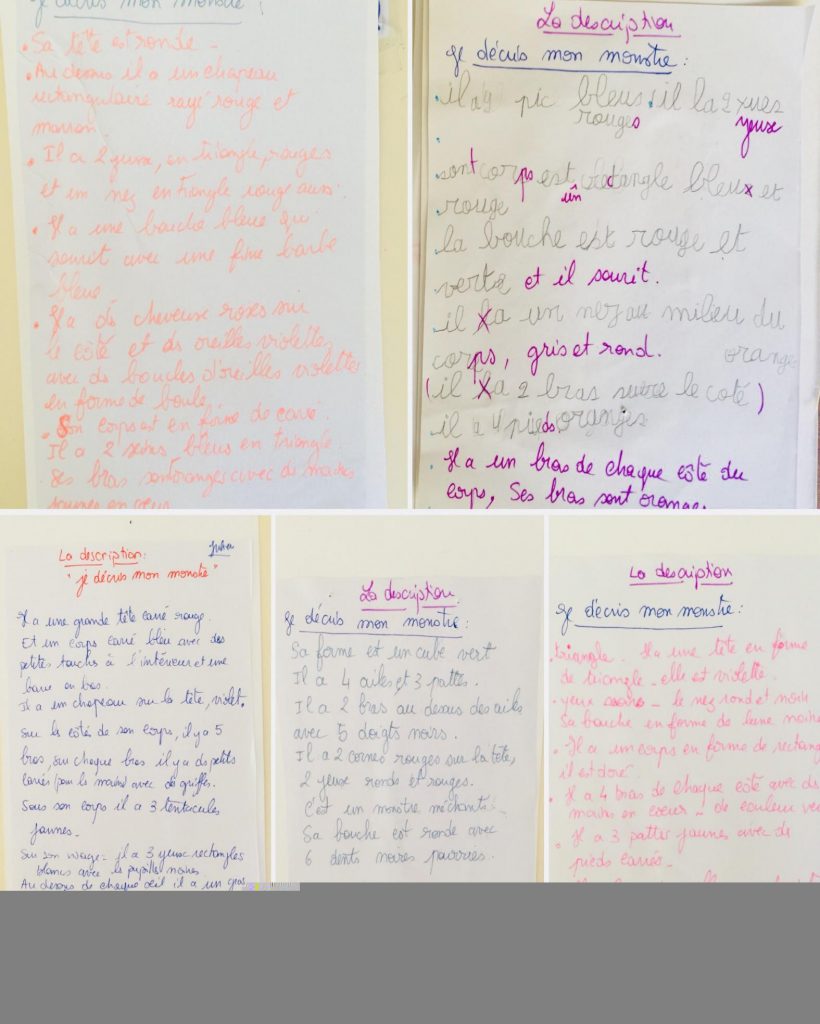 Je décris mon monstre :
• Sa tête est ronde -
• Au dessus il a un chapeau
rectangulaire rayé rouge et
marron.
• Il a 2 yeux, en triangle, rouges
et un nez en triangle rouge aussi.
• Il a une bouche bleue qui
sourit avec une fine barbe
bleue
• Il a des cheveux roses sur
le côté et des oreilles violettes
avec des boucles d'oreilles violettes
en forme de boule.
• Son corps est en forme de carré.
Il a 2 seins bleus en triangle
Ses bras sont oranges avec des mains
jaunes en coeur
La description
Je décris mon monstre :
il a 9 pic bleus. il la 2 xues
rouges yeux
sont corps est un rectangle bleux et
rouge
la bouche est rouge et
verte et il sourit.
il a un nez au milieu du
corps, gris et rond. orange
(il a 2 bras sur le coté)
il a 4 pieds oranges
Il a un bras de chaque côté du
corps, Ses bras sont oranges
La description:
"je décris mon monstre"
Il a une grande tête carré rouge.
Et un corps carré bleu avec des
petites touches à l'intérieur et une
barre en bas.
Il a un chapeau sur la tête, violet.
Sur le côté de son corps, il y a 5
bras, sur chaque bras il y a ds petits
carrés (pour les mains) avec des griffes.
Sous son corps il a 3 tentacules
jaunes -
Sur son visage - il a 3 yeux rectangles
blancs avec les pupilles noires
Au dessus de chaque oeil il a un gros
La desciption
Je décris mon monstre :
Sa forme est un cube vert
Il a 4 ailes et 3 pattes.
Il a 2 bras au dessus des ailes
avec 5 doigts noirs.
Il a 2 cornes rouges sur la tête,
2 yeux ronds et rouges.
C'est un monstre méchant.
Sa bouche est ronde avec
6 dents noires pourries.
La description
Je décris mon monstre :
• triangle. Il a une tête en forme
de triangle - elle est violette.
• yeux noirs - le nez rond et noir
Sa bouche en forme de lune noire
• Il a un corps en forme de rectangle
il est doré
• Il a 4 bras de chaque coté avec des
mains en coeur - de couleur ve
• Il a 3 pattes jaunes avec ds
pieds carrés -